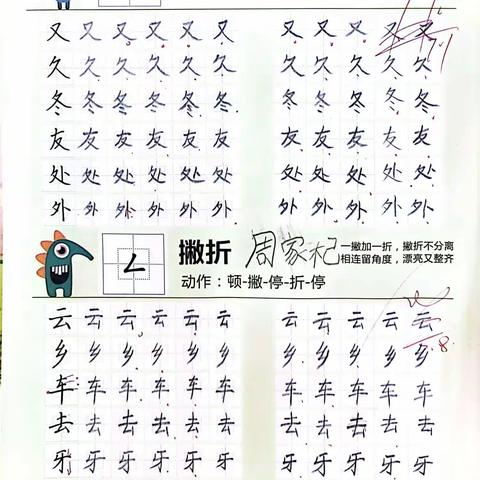 又 又 又 又 又 又 又 又 又 又 又
久 久 久 久 久 久 久 久 久 久 久
冬 冬 冬 冬 冬 冬 冬 冬 冬 冬 冬
友 友 友 友 友 友 友 友 友 友 友
处 处 处 处 处 处 处 处 处 处 处
外 外 外 外 外 外 外 外 外 外 外
撇折 周家杞
一撇加一折，撇折不分离
相连留角度，漂亮又整齐
动作：顿-撇-停-折-停
云 云 云 云 云 云 云 云 云 云 云
乡 乡 乡 乡 乡 乡 乡 乡 乡 乡 乡
车 车 车 车 车 车 车 车 车 车 车
去 去 去 去 去 去 去 去 去 去 去
牙 牙 牙 牙 牙 牙 牙 牙 牙 牙 牙